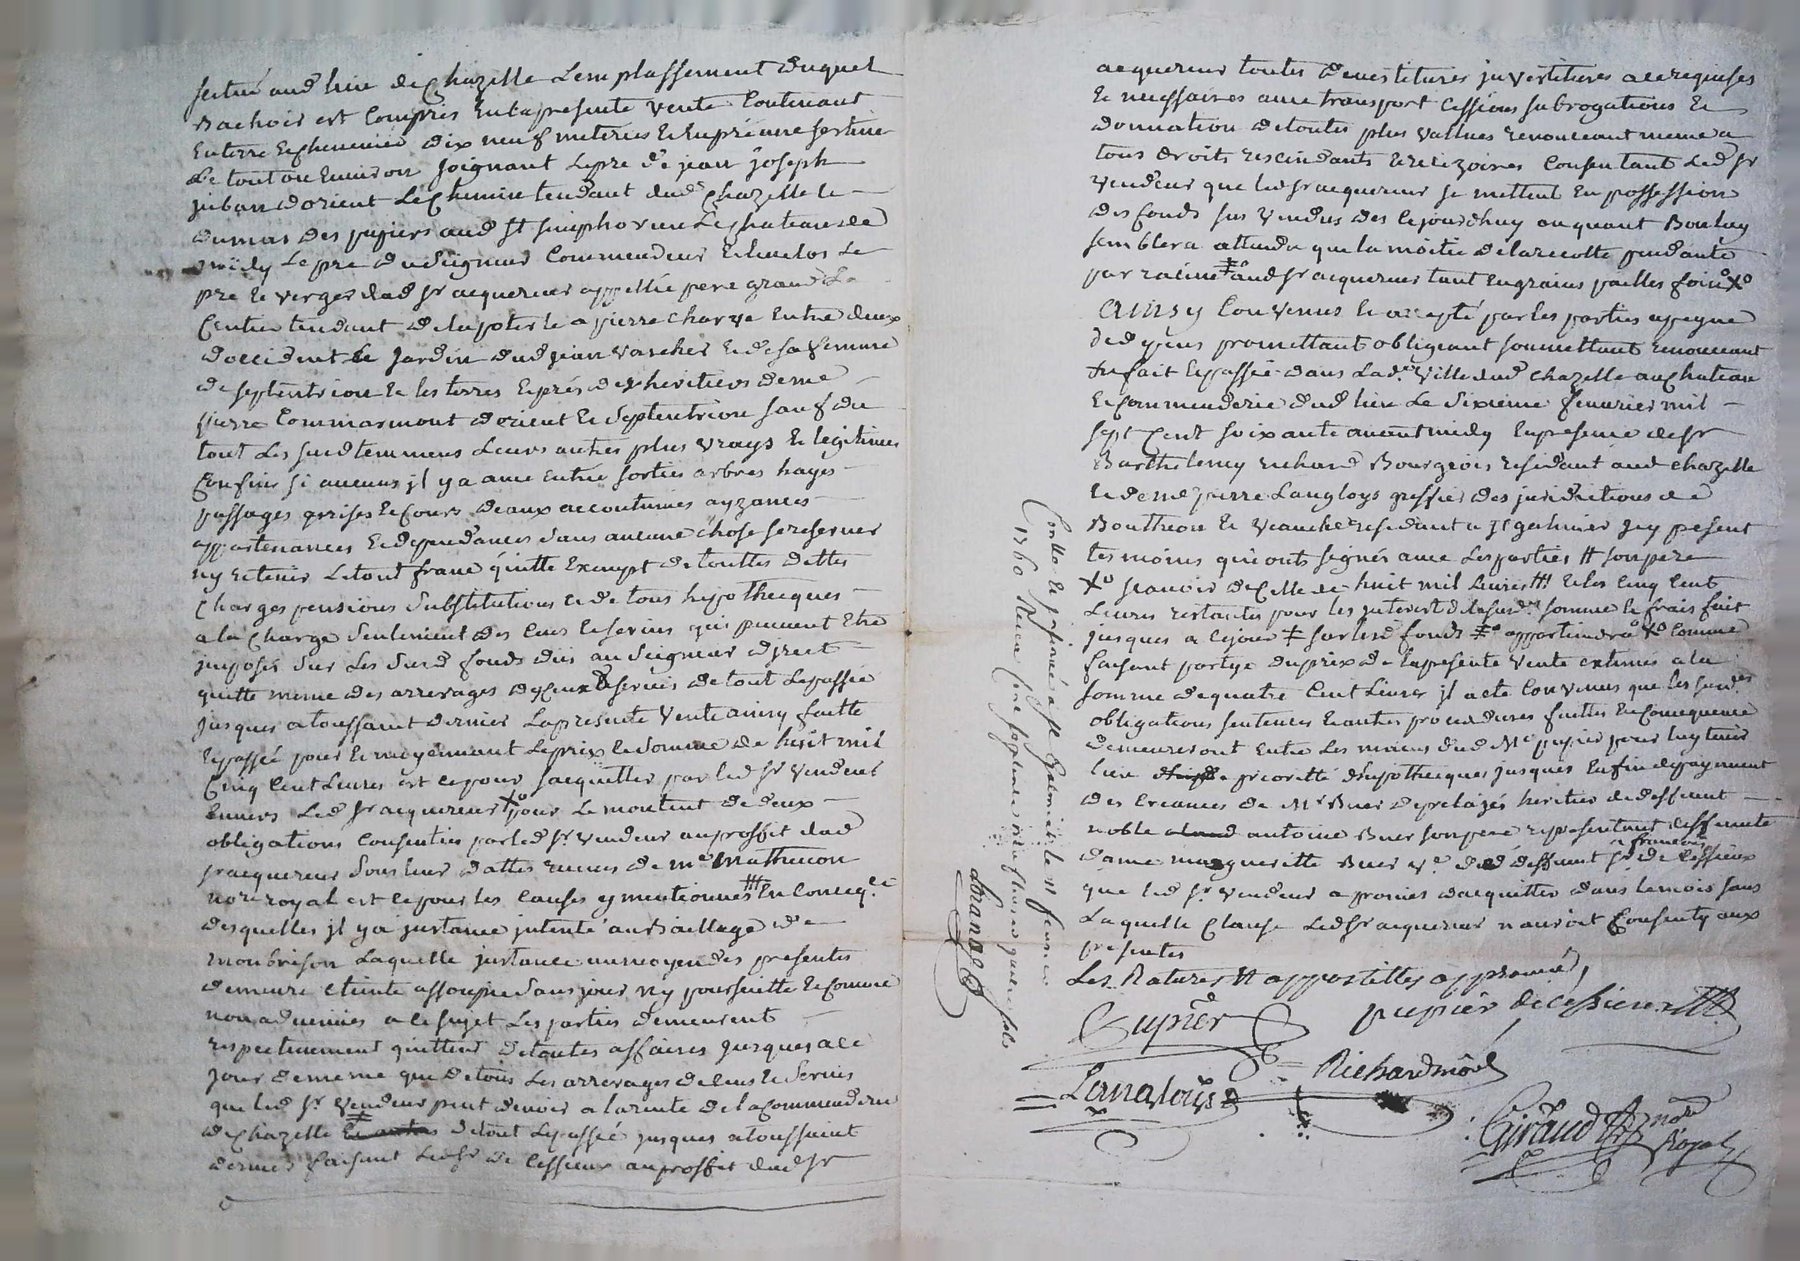 scitué aud lieu de Chazelle Lemplassement duquel
Bachois est Compris En la presente vente Contenant
En terre Et cheneviér dix neuf meteries Et En pré une sertine
Le tout ou Environ Joignant Le pré de jean joseph
juban d'orient Le Chemin tendant dud Chazelle
au mas des papiers aud St simphorien Le chateau de
midy Le pré du Seigneur Commendeur Et Enclos Le
pré Et verger dud Sr acquereur appellé pere grand
Centier tendant de la poterle a pierre Charve Entre deux
d'occident Le Jardin dud jean vacher Et de sa femme
de septentrion Et les terres Et prés des heritiers de me
pierre Commarmont d'orient Et Septentrion sauf du
tout Les surd Leurs autres plus vrays Et legitimes
Confins si aucuns jl y a avec Entrée sorties arbres hayes
passages prises Et Cours d'eaux accoutumés ayzances
appartenances Et deppendances Sans aucune chose Se reserver
ny retenir Le tout franc quitte Exempt de touttes dettes
Charges pensions Substitutions Et de tous hipothecques
a la Charge Seulement des Cens Et servis qui peuvent Etre
jmposés Sur Les Surd fonds dûs au Seigneur direct
quitte meme des arrerages d'yceux Et Servis de tout Le passée
Jusques a toussaint dernier La presente vente ainsy faitte
Et passée pour Et moyennant Le prix Et Somme de huit mil
Cinq Cent Livres Est Ce pour sacquitter par led Sr vendeur
Envers Led Sr acquereur Xo pour Le montent de deux
obligations Consenties par led Sr vendeur au proffit dud
Sr acquereur sous leur dattes receues de me Mathevon
nore royal Est Ce pour les Causes y mentionnés En Conceqce
desquelles jl y a jnstance jntenté au Baillage de
monbrison Laquelle jnstance au moyen des presentes
demeure Eteinte assoupie Sans jour ny poursuitte Et Comme
non advenües a Ce sujet Les parties demeurent
respectivement quittes de toutes affaires Jusques a Ce
jour de meme que de tous Les arrerages de Cens Et Servis
que led Sr Vendeur peut devoir a la rente de la Commenderie
de Chazelle de tout Le passé jusques a toussaint
dernier faisant Led Sr de Cessieux au proffit dud Sr
acquereur toutes devestitures jnvestitures a Ce requises
Et necessaires avec transport Cessions subrogations Et
donnation de toutes plus vallues renonceant meme a
tous droits rescindants Et rescizoires Consentant Led Sr
Vendeur que led Sr acquereur se mettent En possession
des fonds sus vendus des Ce jourdhuy ou quant Bon luy
semblera attendu que la moitié de la recolte pendante
par racine aud Sr acquereur tant En grains pailles foin Xo
Ainsy Convenus Et accepté par les parties a peyne
de d y'ens promettant obligeant soumettant renonceant
fait Et passée dans Lade Ville dud Chazelle au Chateau
Et Commenderie dud lieu Le Sixieme fevrier mil
sept Cent soixante avant midy En presence de Sr
Barthelemy richard Bourgeois residant aud Chazelle
Et de me pierre Langloys greffier des juridictions de
Boutheon Et Veauche residant a St galmier jcy present
tesmoins qui ont signés avec Les parties # son pere
Xo scavoir de Celle de huit mil Livres Et les Cinq Cent
Livres restantes pour les jnterest de la surde somme Et frais fait
jusques a Ce jour sur led fonds appartiendra Xo Comme
faisant partye du prix de la presente vente estimés a la
somme de quatre Cent Livres jl a eté Convenus que les surdes
obligations sentences Et autres procedures faittes En Consequence
demeureront Entre Les mains dud Me papier pour luy tenir
lieu de priorité d'hypothecques jusques En fin de payement
des Creances de Mr Buer de prelajés heritier de deffunt
noble antoine Buer son pere representant deffunte
dame margueritte Buer Ve de deffunt Sr francois de Cessieux
que led Sr Vendeur a promis d'acquitter dans le mois sans
Laquelle Clause Led Sr acquereur n'auroit Consenty aux
presentes
Les Ratures Et appostilles approuvés
Cupier papiér de Cessieux
Langloys Richard môd
Giraud nore Royal
Contlé Et jnsinué a St Galmier le
1760 Receu soixante quatre sols